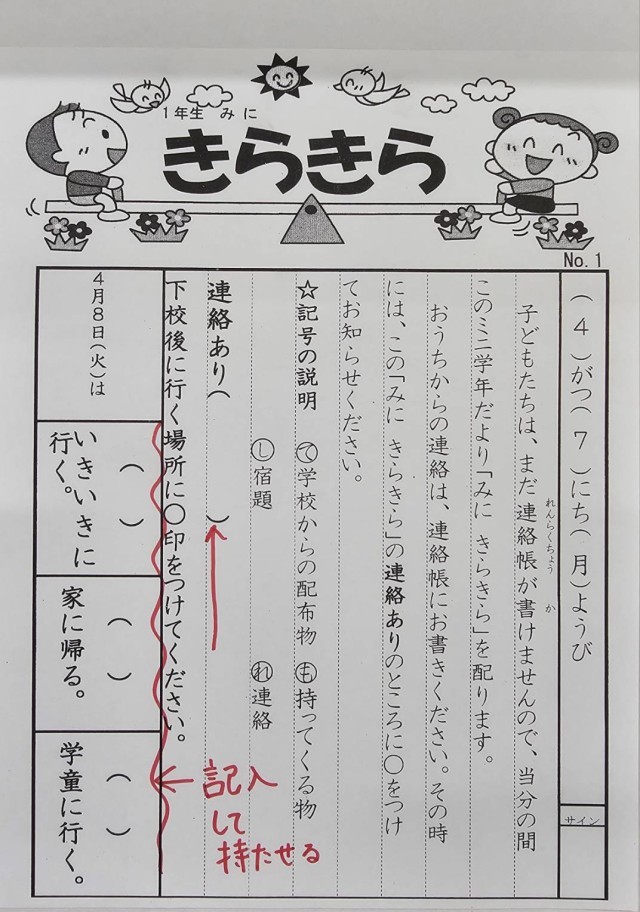 1年生 みに
きらきら
No.1
(4)がつ(7)にち(月)ようび
サイン
子どもたちは、まだ連絡帳が書けませんので、当分の間
れんらくちょう か
このミニ学年だより「みに きらきら」を配ります。
おうちからの連絡は、連絡帳にお書きください。その時
には、この「みに きらきら」の連絡ありのところに○をつけ
てお知らせください。
☆記号の説明 ㋢学校からの配布物 ㋲持ってくる物
㋛宿題 ㋹連絡
連絡あり( )
下校後に行く場所に○印をつけてください。
記入
して
持たせる
4月8日(火)は
( )
いきいきに
行く。
( )
家に帰る。
( )
学童に行く。